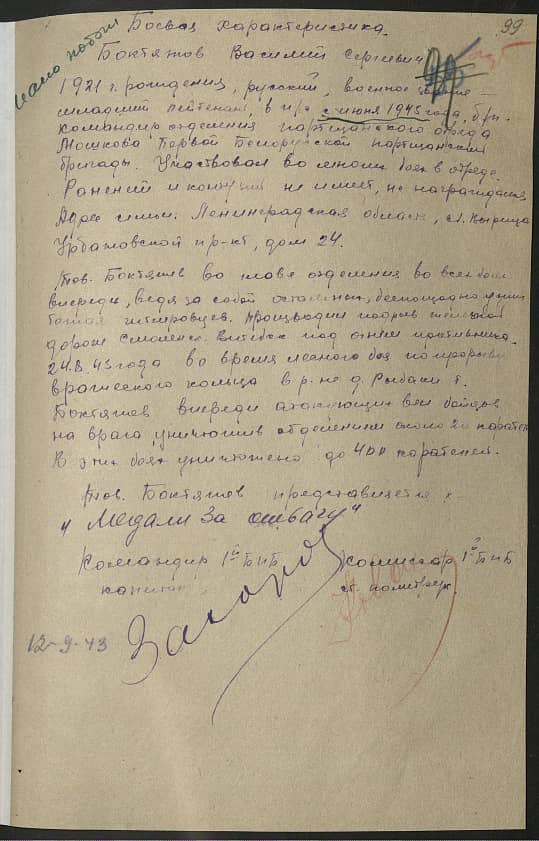 99
Боевая характеристика.
Боктяшов Василий Сергеевич
1921 г. рождения, русский, военное звание —
младший лейтенант, в п/о с июня 1943 года, б/п.
командир отделения партизанского отряда
Мошкова Первой Белорусской партизанской
бригады. Участвовал во многих боях в отряде.
Ранений и контузий не имеет, не награждался
Адрес семьи: Ленинградская область, ст. Вырица
пр-кт, дом 24.
Тов. Боктяшев во главе отделения во всех боях
впереди, ведя за собой остальных, беспощадно уничто
гитлеровцев. Производил подрыв железной
дороги Смоленск Витебск под огнем противника.
24.8.43 года во время лесного боя по прорыву
вражеского кольца в р-не д. Рыбаки т.
Боктяшев впереди атакующих вел бойцов
на врага, уничтожив отделением около 20 карателей
В этих боях уничтожено до 400 карателей.
Тов. Боктяшев представляется к
"Медали За отвагу"
Командир 1й БПБ комиссар 1й БПБ
капитан ст. политрук
12-9-43